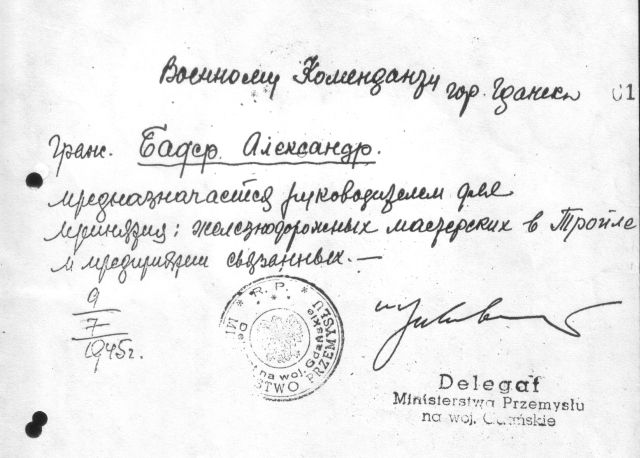 Военному Коменданту гор. Гданска
01
Граж. Бадер Александр.
предназначается руководителем для
принятия: железнодорожных мастерских в Тройле
и предприятий связанных. —
9
7
1945г.
* R. P. *
MINISTERSTWO PRZEMYSŁU
na woj. Gdańskie
Delegat
Ministerstwa Przemysłu
na woj. Gdańskie